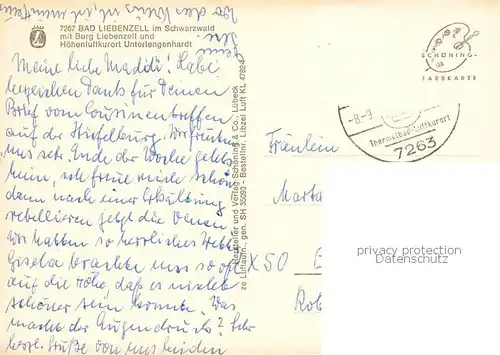 7267 BAD LIEBENZELL im Schwarzwald
mit Burg Liebenzell und
Höhenluftkurort Unterlengenhardt
SCHÖNING-
FARBKARTE
Meine liebe Madidi! Habe
herzlichen Dank für Deinen
Brief vom Cousinentreffen
auf der Wir freuten
uns sehr. Ende der Woche geht's
heim, ich freue mich schon,
dann nach einer Erkältung
rebellieren jetzt die Venen
Wir hatten so herrliches Wetter
Gisela brachte uns so oft
auf die Höhe, daß es nicht
schöner sein konnte. Was
macht der Augendruck? Sehr
herzl. Grüße von uns beiden
Hersteller und Verlag Schöning & Co., Lübeck
gen. SH 35093 - Bestellnr. Liezel Luft KL 4782
-8-9
Thermalbad-Luftkurort
7263
Fräulein
Marta
X50
Rob
privacy protection
Datenschutz